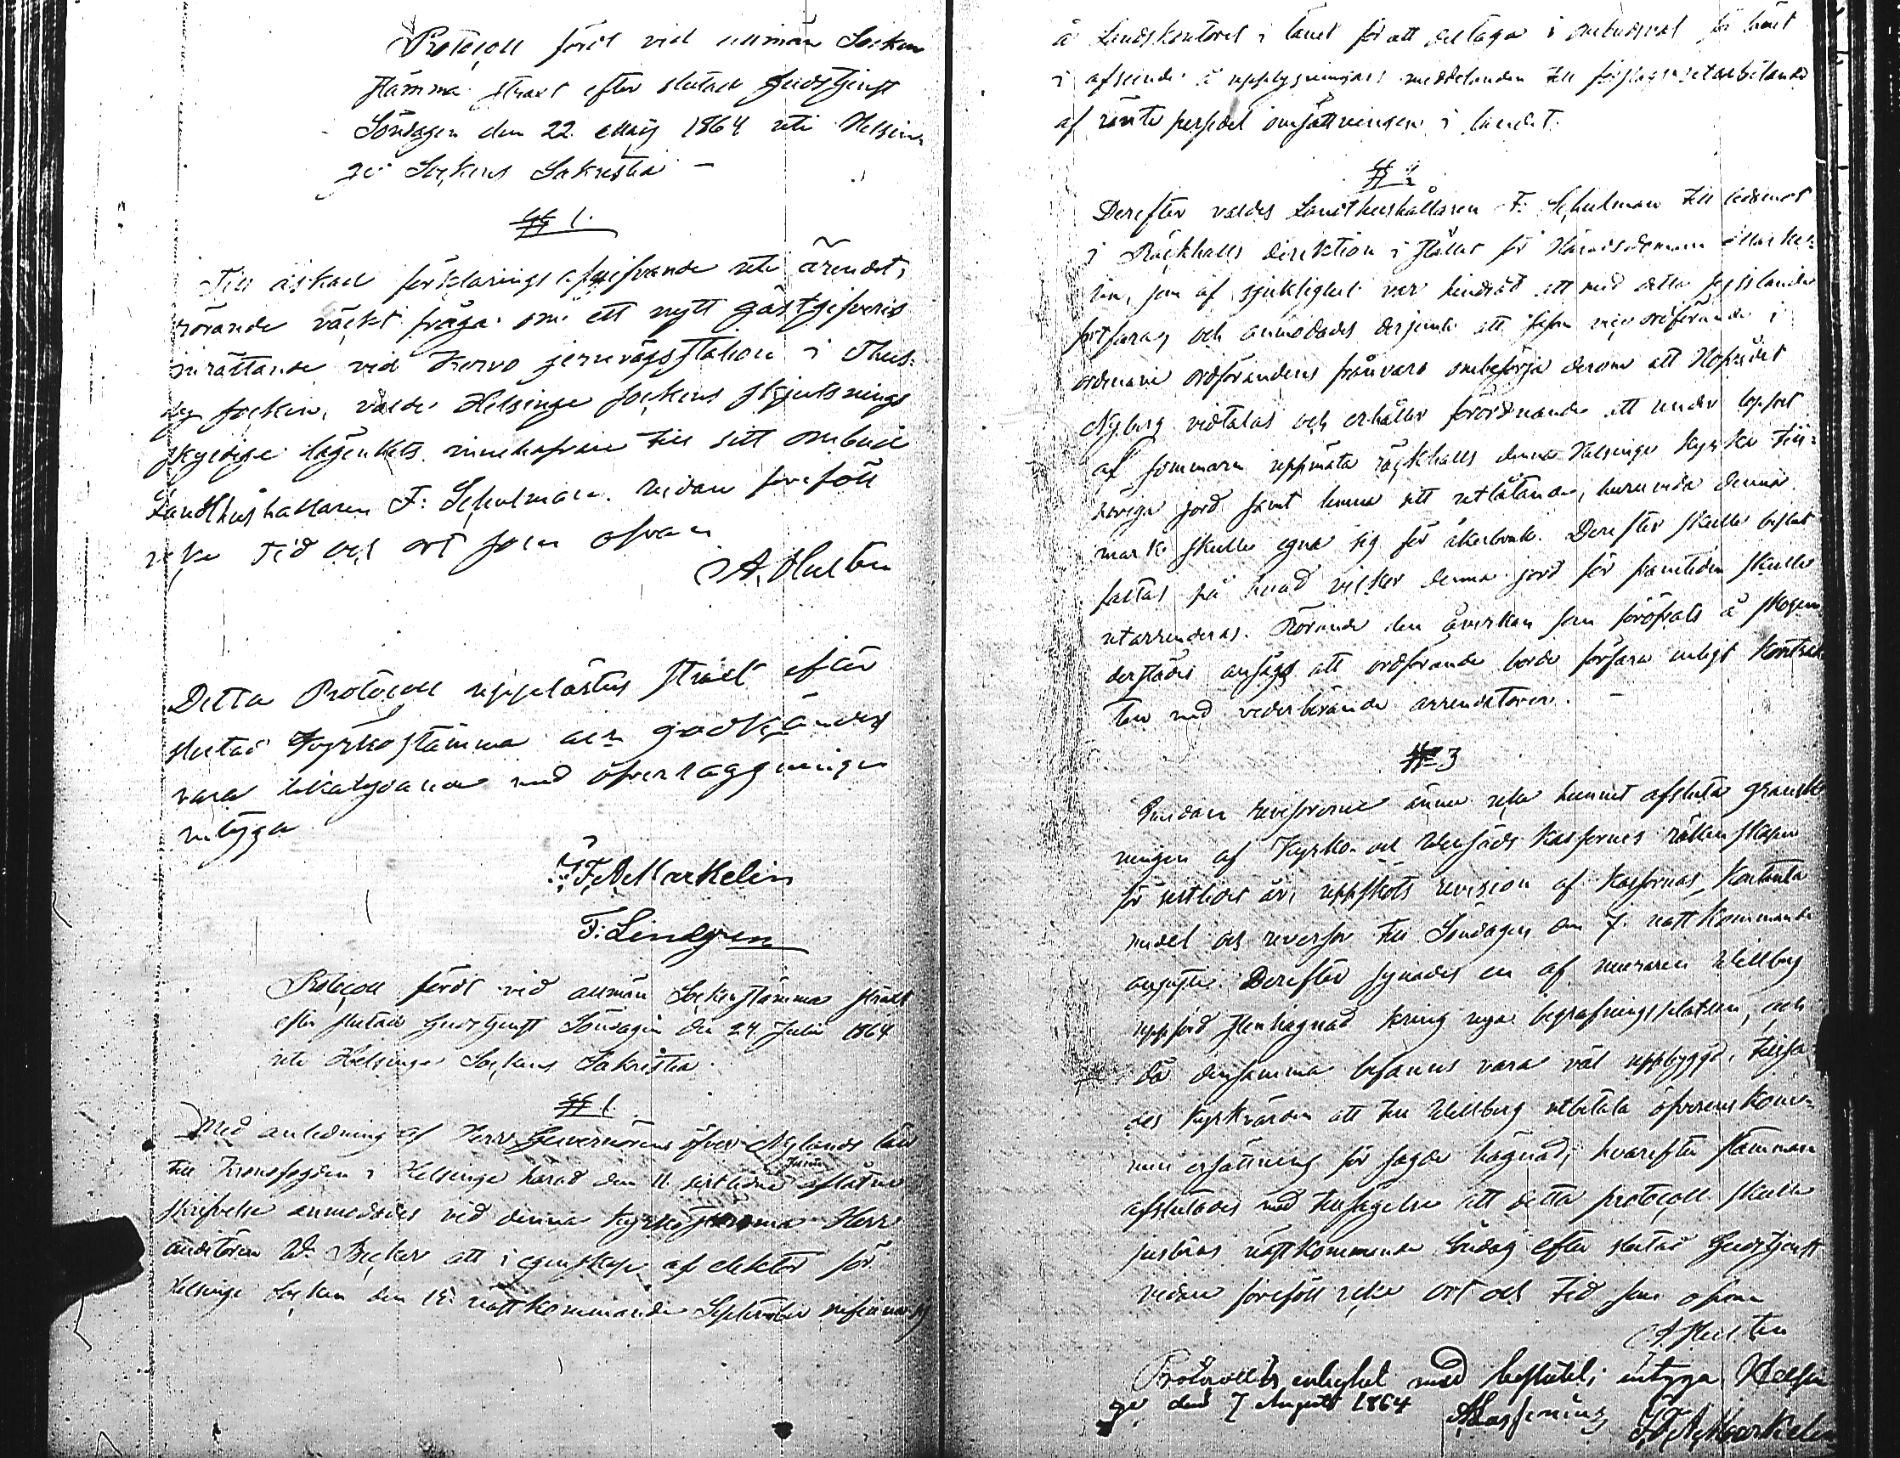 Protocoll fördt vid allmän Socken
stämma straxt efter slutad Gudstjenst
Söndagen den 22 Maij 1864 uti Helsin
ge Sockens Sakristia –
§ 1.
Till äskad förklarings afgifvande uti ärendet,
rörande väckt fråga om ett nytt gästgifveris
inrättande vid Kervo jernvägsstation i Thus-
by socken, valde Helsinge sockens skjutsnings
skyldige lägenhets innehafvare till sitt ombud
Landthushållaren F: Schulman. Vidare föreföll
icke Tid och ort som ofvan
A. Hulten
Detta Protocoll upplästes straxt efter
slutad Kyrkostämma och godkändes
vara likalydande med öfverläggningen
intyga
J. F. A. Markelin
F: Lindgren
Protocoll fördt vid allmän Sockenstämma straxt
efter slutad Gudstjenst Söndagen den 24 Julii 1864
uti Helsinge Sockens Sakristia.
§ 1.
Med anledning af Herr Guvernörens öfver Nylands län
till Kronofogden i Helsinge härad den 11. sistlidne Junii aflåtne
skrifvelse anmodades vid denna kyrkostämma Herr
auditören W. Becker att i egenskap af elektor för
Helsinge Socken den 15. nästkommande September infinna sig
å Landskontoret i länet för att deltaga i ombudsval för länet
i afseende å upplysningars meddelanden till förslagets utarbetande
af ränte persedel omsättningen i landet.
§ 2
Derefter valdes Landthushållaren F. Schulman till ledamot
i Räckhalls direktion i stället för Häradsdomare Marke-
lin, som af sjuklighet var hindrad att med detta
fortfara, och anmodades derjemte att såsom vice ordförande i
ordinarie ordförandens frånvaro ombesörja derom att Hofrådet
Nyberg vidtalas och erhåller förordnande att under loppet
af sommaren uppmäta räckhalls denna Helsinge kyrka till-
höriga jord samt lemna sitt utlåtande, huruvida denna
mark skulle egna sig för åkerbruk. Derefter skulle beslut
fattas på hvad vilkor denna jord för framtiden skulle
utarrenderas. Rörande den åverkan som föröfvats å skogen
derstädes ansågs att ordförande borde förfara enligt Kontrak
ten med vederbörande arrendatorer.
§ 3
Emedan revisorerne ännu icke hunnit afsluta gransk
ningen af Kyrko- och kassornes räkenskaper
för sistlidet år, uppskots revision af kassornas, kontanta
medel och reverser till Söndagen den 7. nästkommande
augusti. Derefter synades en af muraren Willberg
uppförd stenhägnad kring nya begrafningsplatsen, och
då densamma befanns vara väl uppbyggd, tillsa-
des kyrkvärden att till Willberg utbetala öfverenskom-
men ersättning för sagde hägnad; hvarefter stämman
afslutades med tillsägelse att detta protocoll skulle
justeras nästkommande Söndag efter slutad Gudstjenst
vidare föreföll icke ort och tid som ofvan
A. Hulten
Protocollets enlighet med beslutet, intyga Helsin
ge den 7 Augusti 1864 J. F. A. Markelin